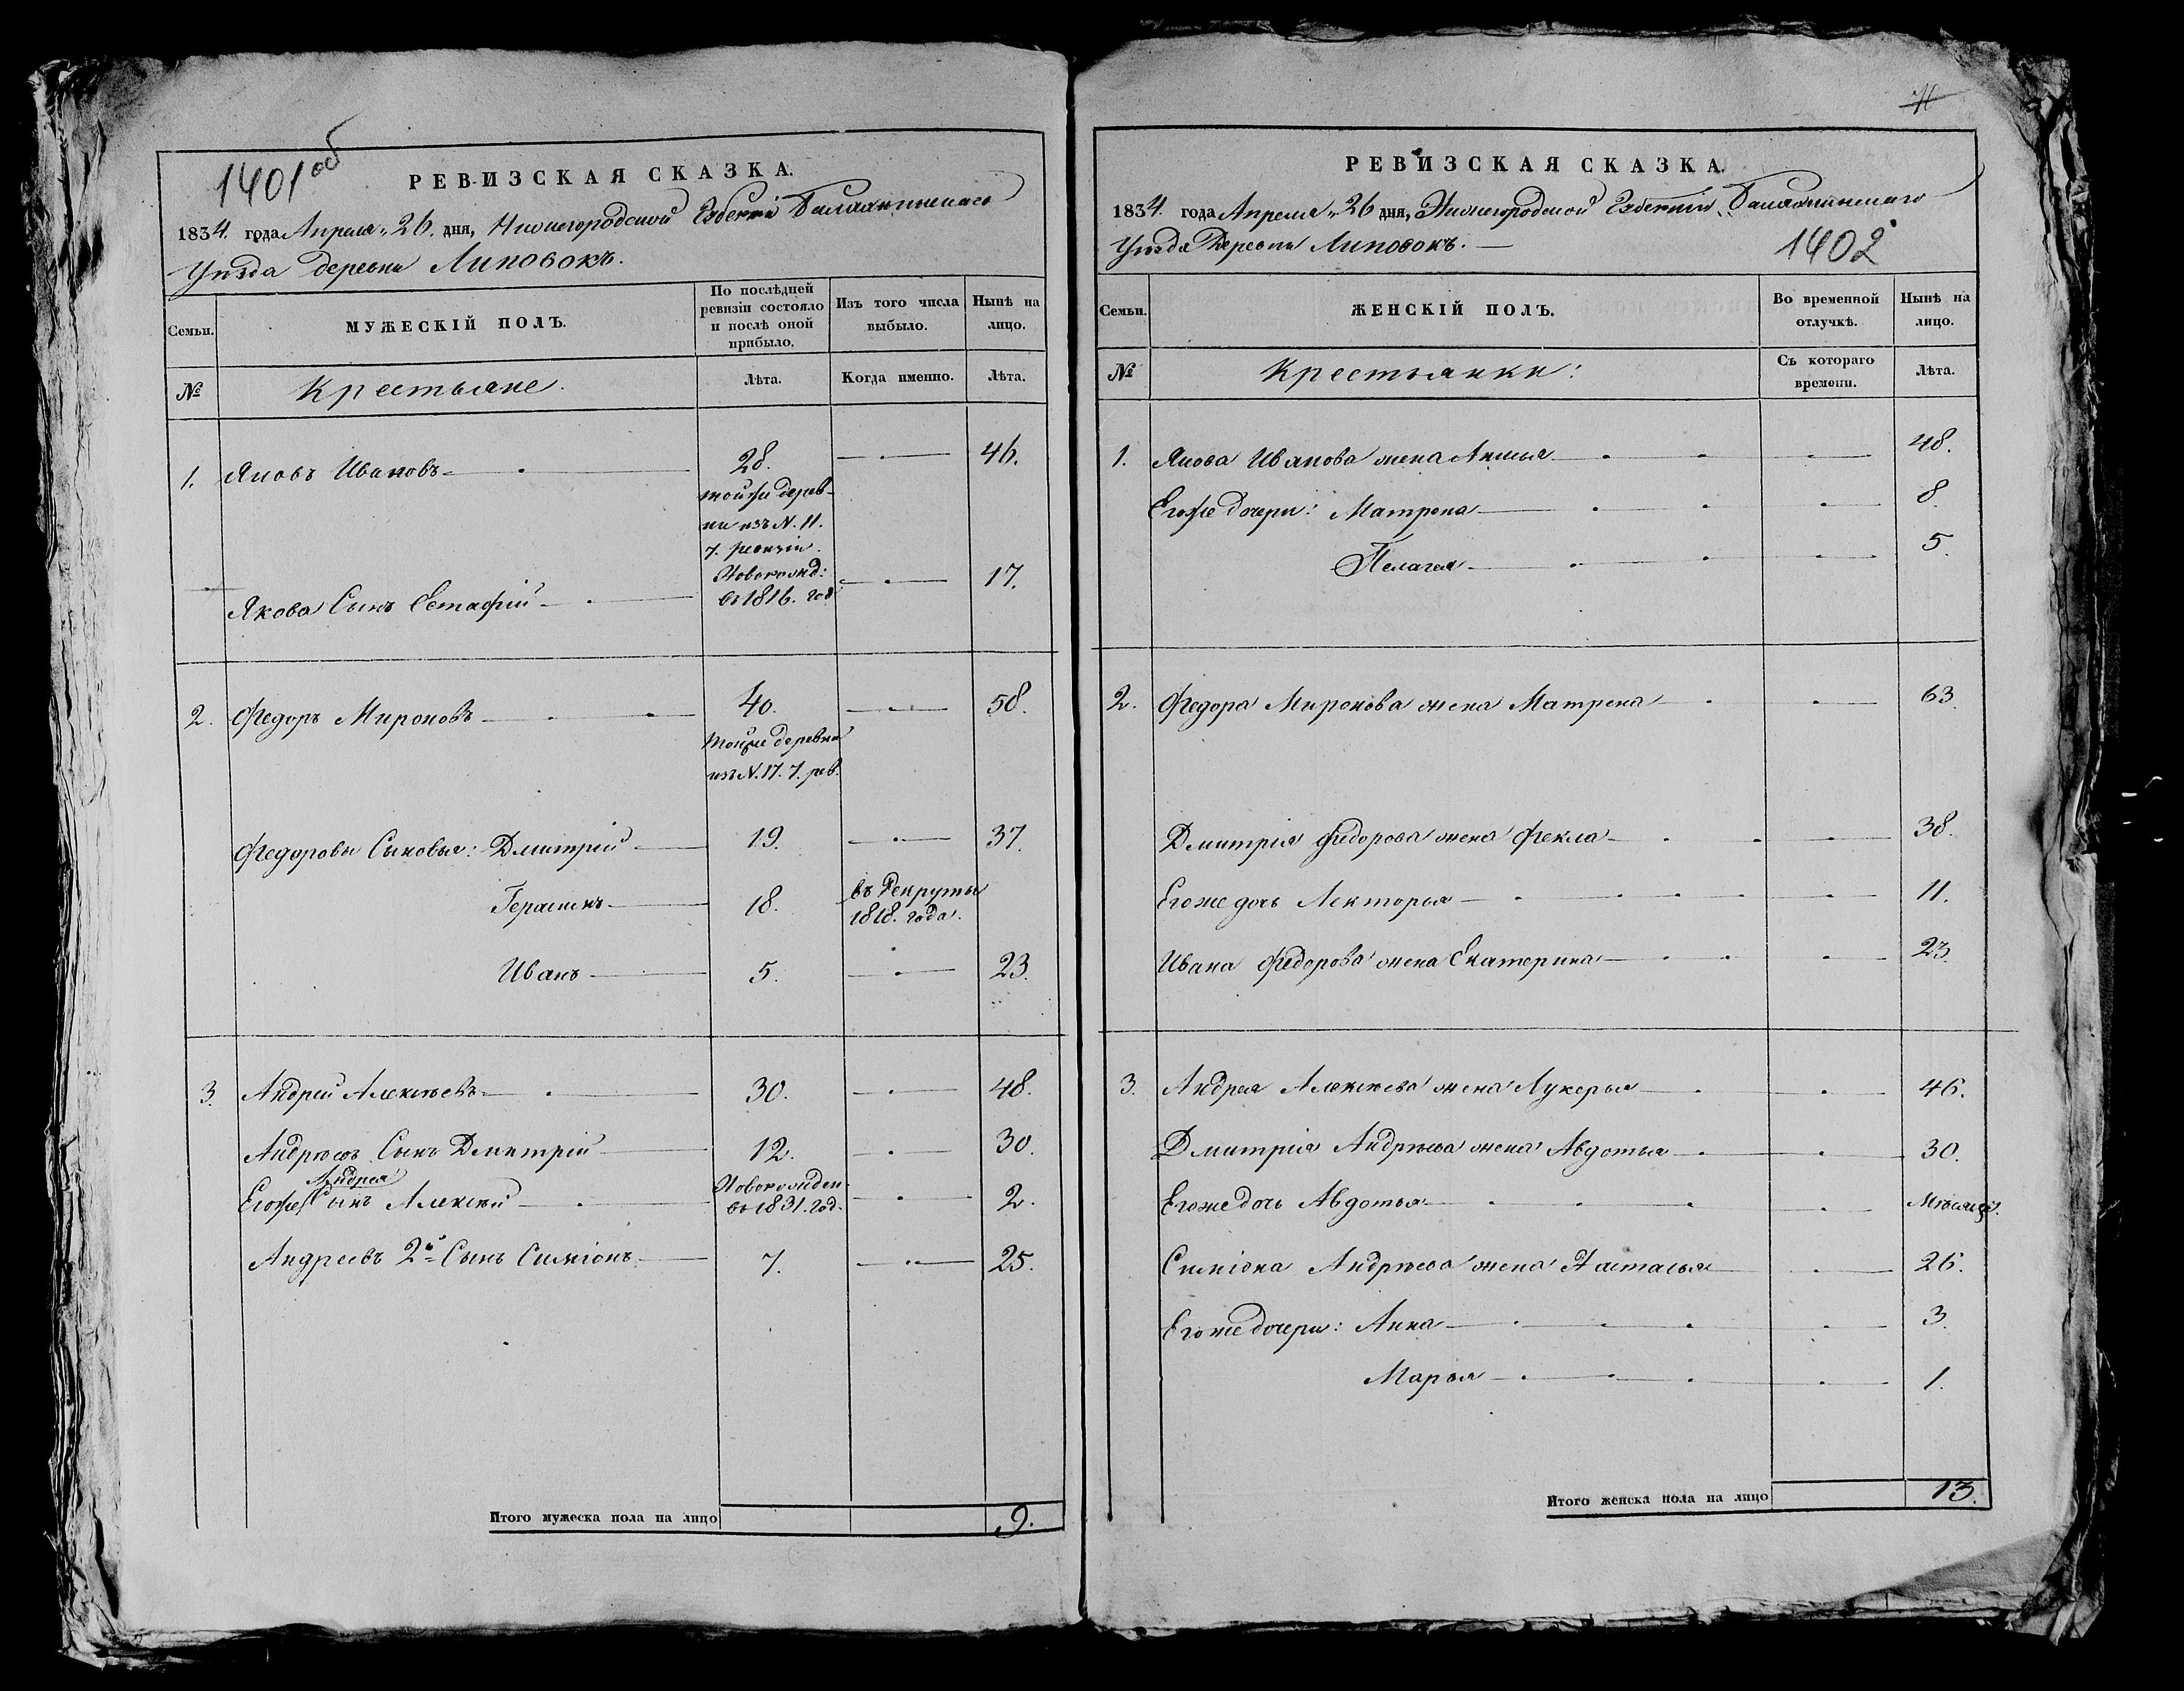 1401 об
РЕВИЗСКАЯ СКАЗКА.
1834. года Апреля „26. дня, Нижегородской Губернiи Балахнинскаго
Уезда деревни Липовокъ.
Семьи.
МУЖЕСКIЙ ПОЛЪ.
По послѣдней ревизiи состояло и послѣ оной прибыло.
Изъ того числа выбыло.
Нынѣ на лицо.
№
Крестьяне.
Лѣта.
Когда именно.
Лѣта.
1. Яковъ Ивановъ 28. 46.
тойже дерев-
ни изъ N. 11.
7. ревизiи.
Новорожд:
Якова Сынъ Естафiй въ 1816. год 17.
2. Федоръ Мироновъ 40. 58.
тойже деревни
изъ N. 17. 7. рев.
Федоровы Сыновья: Дмитрiй 19. 37.
Герасимъ 18. въ Рекруты
1818. года.
Иванъ 5. 23.
3. Андрей Алексѣевъ 30. 48.
Андрѣевъ Сынъ Дмитрiй 12. 30.
Андрея
Новорожден.
Егоже Сынъ Алексѣй въ 1831. год. 2.
Андреевъ 2й Сынъ Симiонъ 7. 25.
Итого мужеска пола на лицо 9.
РЕВИЗСКАЯ СКАЗКА.
1834. года Апреля „26 дня, Нижегородской Губернiи Балахнинскаго
Уѣзда Деревни Липовокъ.
1402
Семьи.
ЖЕНСКIЙ ПОЛЪ.
Во временной отлучкѣ.
Нынѣ на лицо.
№
Крестьянки:
Съ котораго времени.
Лѣта.
1. Якова Иванова жена Аксинья 48.
Егоже дочери: Матрена 8.
Пелагея 5.
2. Федора Миронова жена Матрена 63.
Дмитрiя Федорова жена Фекла 38.
Егоже дочь Лекторья 11.
Ивана Федорова жена Екатерина 23.
3. Андрея Алексѣева жена Лукерья 46.
Дмитрiя Андрѣева жена Авдотья 30.
Егоже дочь Авдотья мѣсяцъ.
Симiона Андрѣева жена Настасья 26.
Егоже дочери: Анна 3.
Марья 1.
Итого женска пола на лицо 13.